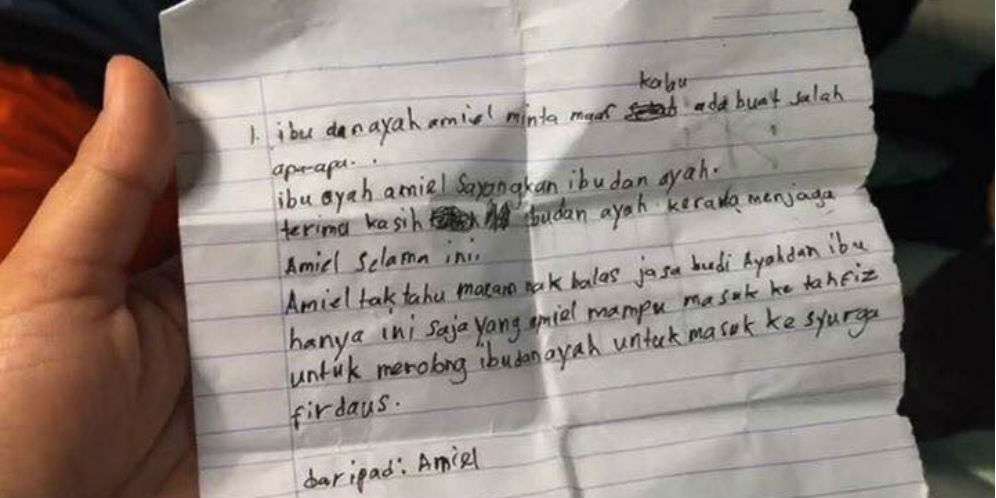 kabu
1. ibu dan ayah amiel minta maaf ada buat salah
apa-apa..
ibu ayah amiel Sayangkan ibu dan ayah.
terima kasih ibudan ayah kerana menjaga
Amiel Selama ini.
Amiel tak tahu macam nak balas jasa budi Ayahdan ibu
hanya ini saja yang amiel mampu masuk ke tahfiz
untuk merolong ibudan ayah untuk masuk ke syurga
firdaus.
daripad: Amiel